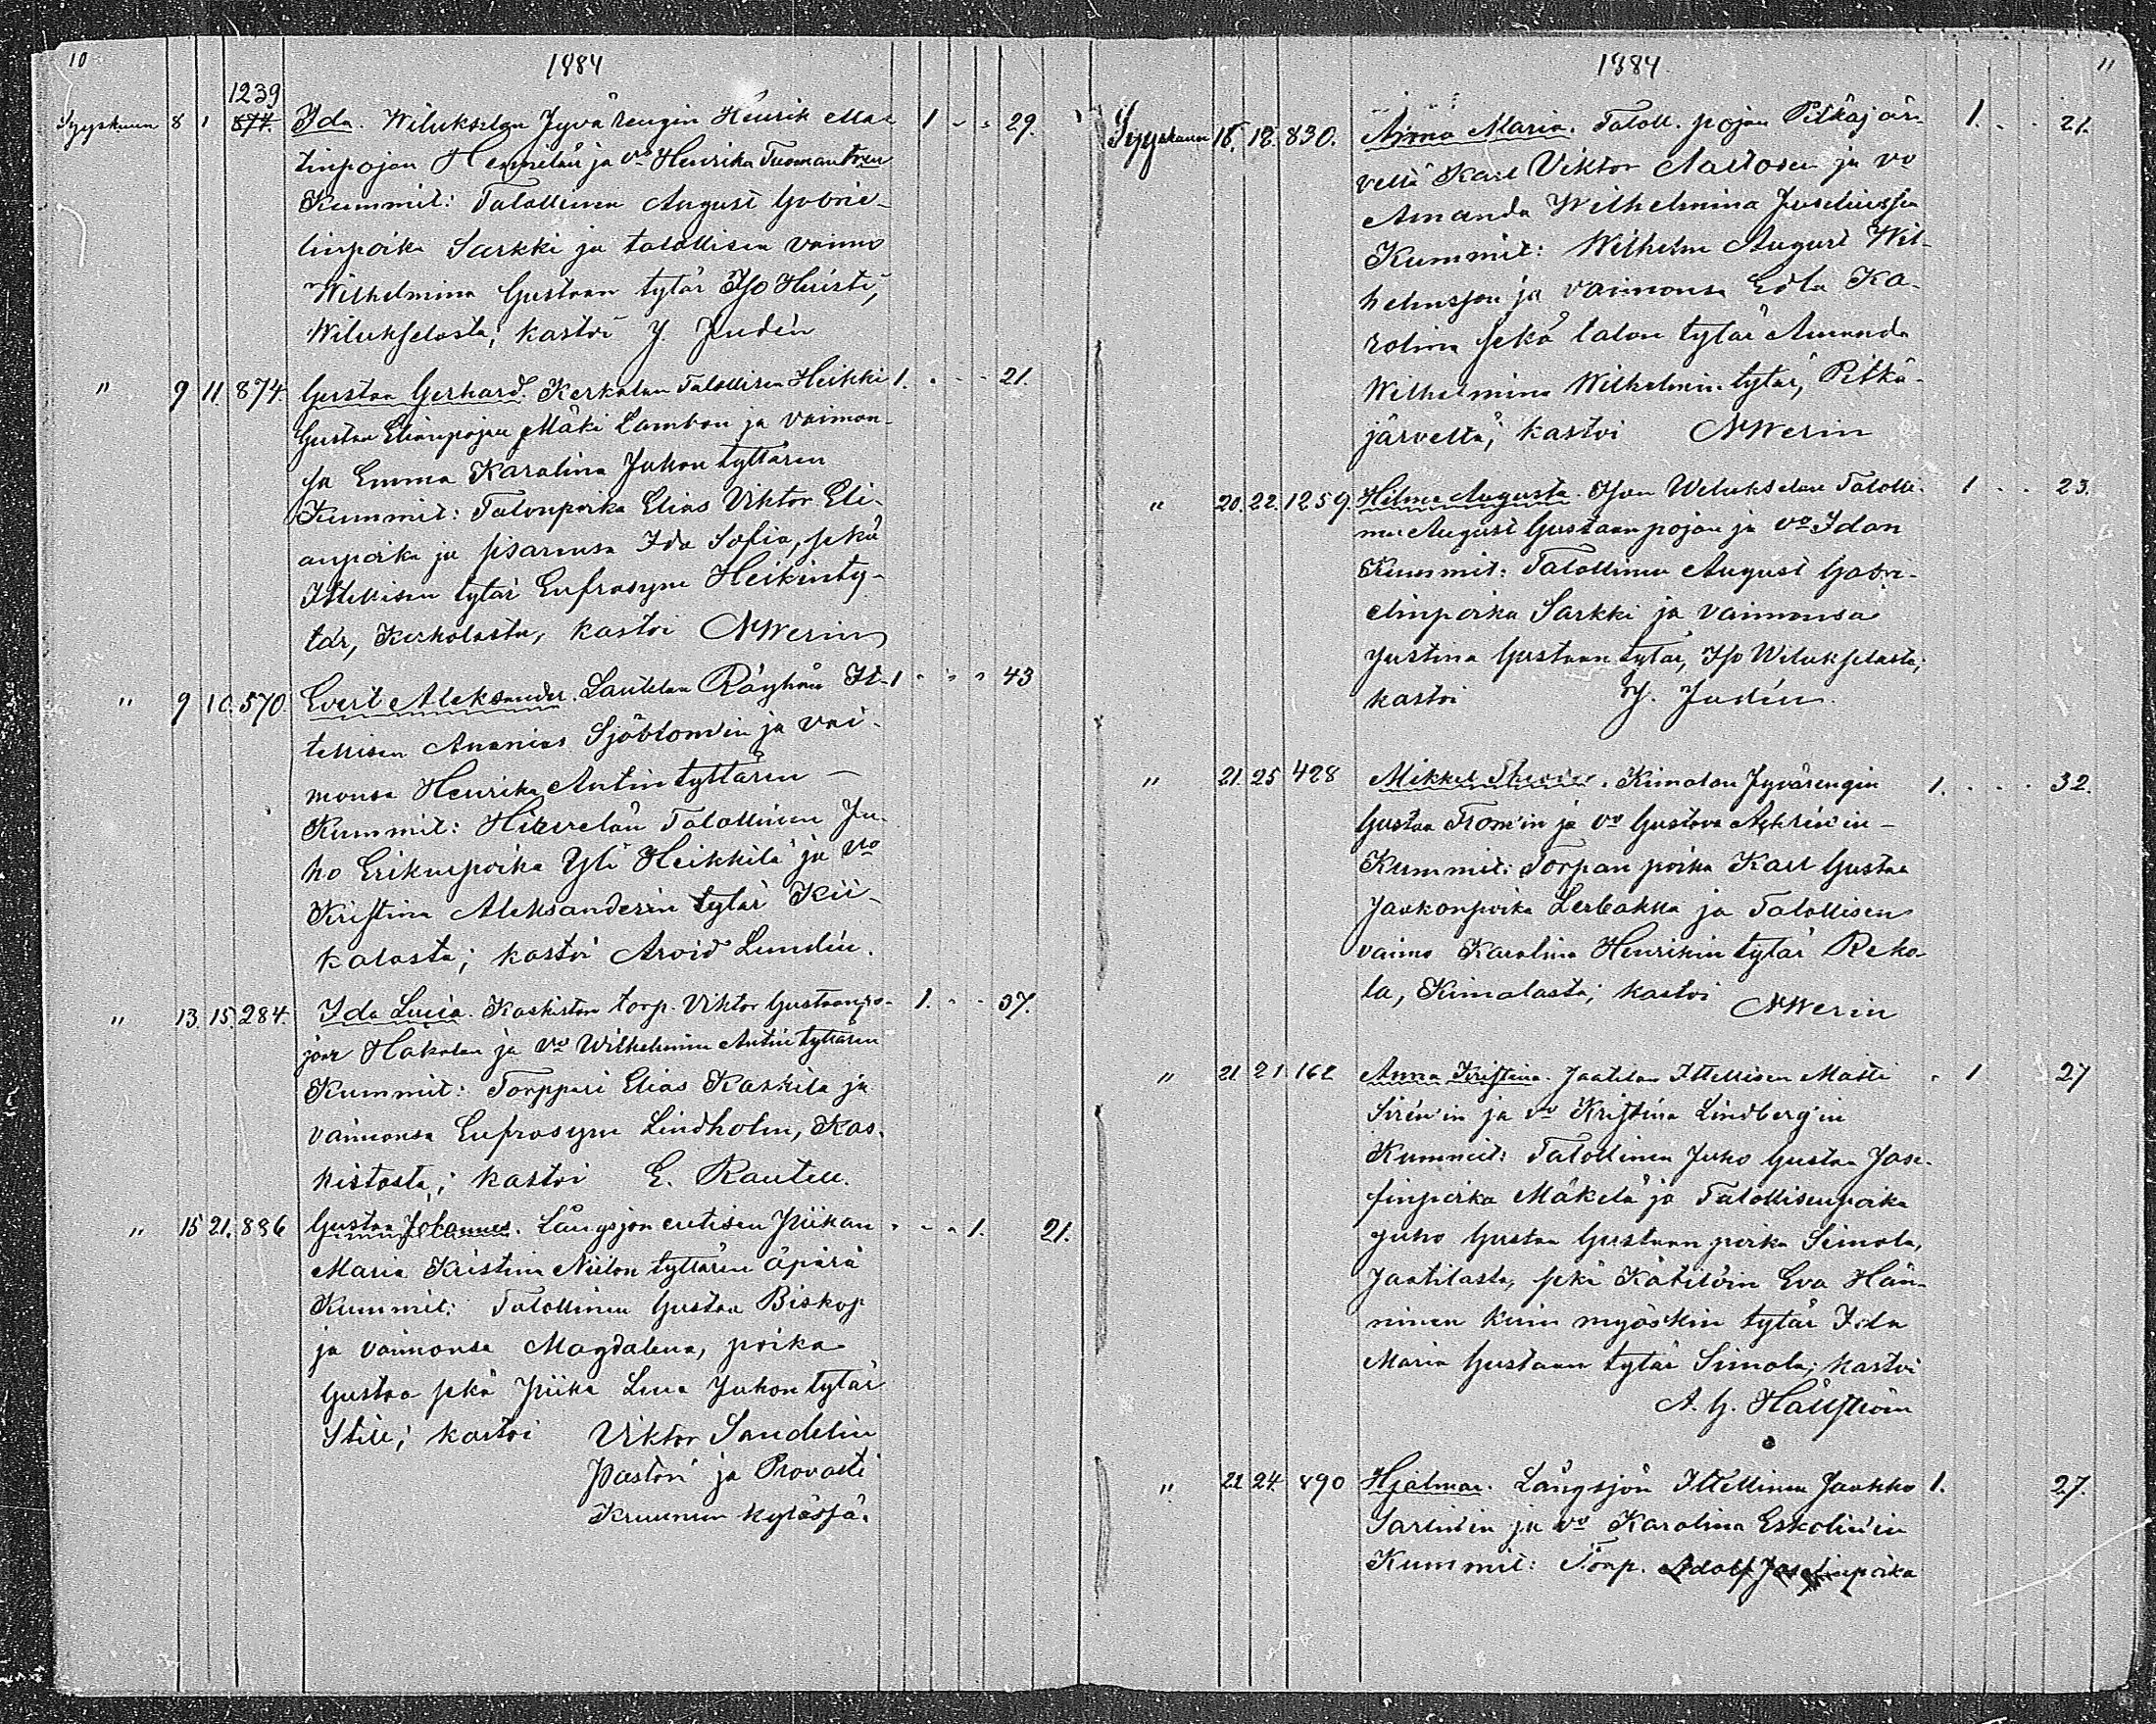 10
1884
1239
Syyskuun 8 " 877. Ida. Wilukselan Jyvä rengin Henrik Mat- 1 - - 29.
tinpojan Hennilän ja vo Henrika Tuomaantr:en
Kummit: Talollinen August Gabrie-
linpoika Sarkki ja talollisen vaimo
Wilhelmina Gustaan tytär Iso Heisti,
Wilukselasta; kastoi J. Judén
" 9 11. 874. Gustaa Gerhard. Kerkolan Talollisen Heikki 1. - - - 21.
Gustaa Elianpojan Mäki Lambon ja vaimon-
sa Emma Karolina Juhon tyttären
Kummit: Talonpoika Elias Viktor Eli-
anpoika ja sisarensa Ida Sofia, sekä
Ittellisen tytär Eufrosyne Heikinty-
tär, Kerkolasta, kastoi NWerin
" 9 10. 570 Evert Aleksander. Lautelan Räyhän It- 1 " " " 43
tellisen Ananias Sjöblom'in ja vai-
monsa Henrika Antin tyttären —
Kummit: Talollinen Ju-
ho Erikinpoika Yli Heikkilä ja vo
Kristina Aleksanderin tytär Kii-
kalasta; kastoi Arvid Lundén.
" 13. 15. 284. Ida Lucia. Kaskiston torp. Viktor Gustaanpo- 1. - - - 37.
jan Hakalan ja vo Wilhelmina Antin tyttären
Kummit: Torppari Elias Kaskila ja
vaimonsa Eufrosyne Lindholm, Kas-
kistosta; kastoi E. Rautell.
" 15 21. 886 Gustaa Johannes. Långsjön entisen Piikan - - - 1. 21.
Maria Kristina Niilon tyttären äpärä
Kummit: Talollinen Gustaa Biskop
ja vaimonsa Magdalena, poika
Gustaa sekä Piika Lena Juhon tytär
Still; kastoi Viktor Sandelin
Pastori ja Provasti
Kruunun kylässä.
1884
11
Syyskuun 18. 18. 830. Anna Maria. Taloll. pojan Pitkäjär- 1. - - 21.
veltä Karl Viktor Aaltosen ja vo
Amanda Wilhelmina Juseliussen
Kummit: Wilhelm August Wil-
helmsson ja vaimonsa Edla Ka-
rolina sekä talon tytär Amanda
Wilhelmina Wilhelmin. tytär, Pitkä-
järveltä; kastoi NWerin
" 20. 22. 1259. Hilma Augusta. Ison Wilukselan Talolli- 1 - - 23.
nen August Gustaan pojan ja vo Idan
Kummit: Talollinen August Gabri-
elinpoika Sarkki ja vaimonsa
Justina Gustaan tytär, Iso Wilukselasta;
kastoi J. Judén.
" 21. 25 428 Mikkel Theodor. Kimalan Jyvärengin 1. - - - 32.
Gustaa From'in ja vo Gustava in —
Kummit: Torpan poika Karl Gustaa
Jaakonpoika Lerbakka ja Talollisen
vaimo Karolina Henrikin tytär Reko-
la, Kimalasta; kastoi NWerin
" 21. 21 162 Anna Kristina. Jaatilan Ittellisen Matti - 1 27
Sirén'in ja vo Kristina Lindberg'in
Kummit: Talollinen Juho Gustaa Jose-
finpoika Mäkelä ja Talollisenpoika
Juho Gustaa Gustaan poika Simola,
Jaatilasta, sekä Kätilöin Eva Hän-
ninen kuin myöskin tytär Ida
Maria Gustaan tytär Simola; kastoi
A. G. Hällström
" 21. 24. 890 Hjalmar. Långsjön Ittellinen Jaakko 1. 27.
Sarlin'in ja vo Karolina Eskolin'in
Kummit: Torp. Adolf Josefinpoika